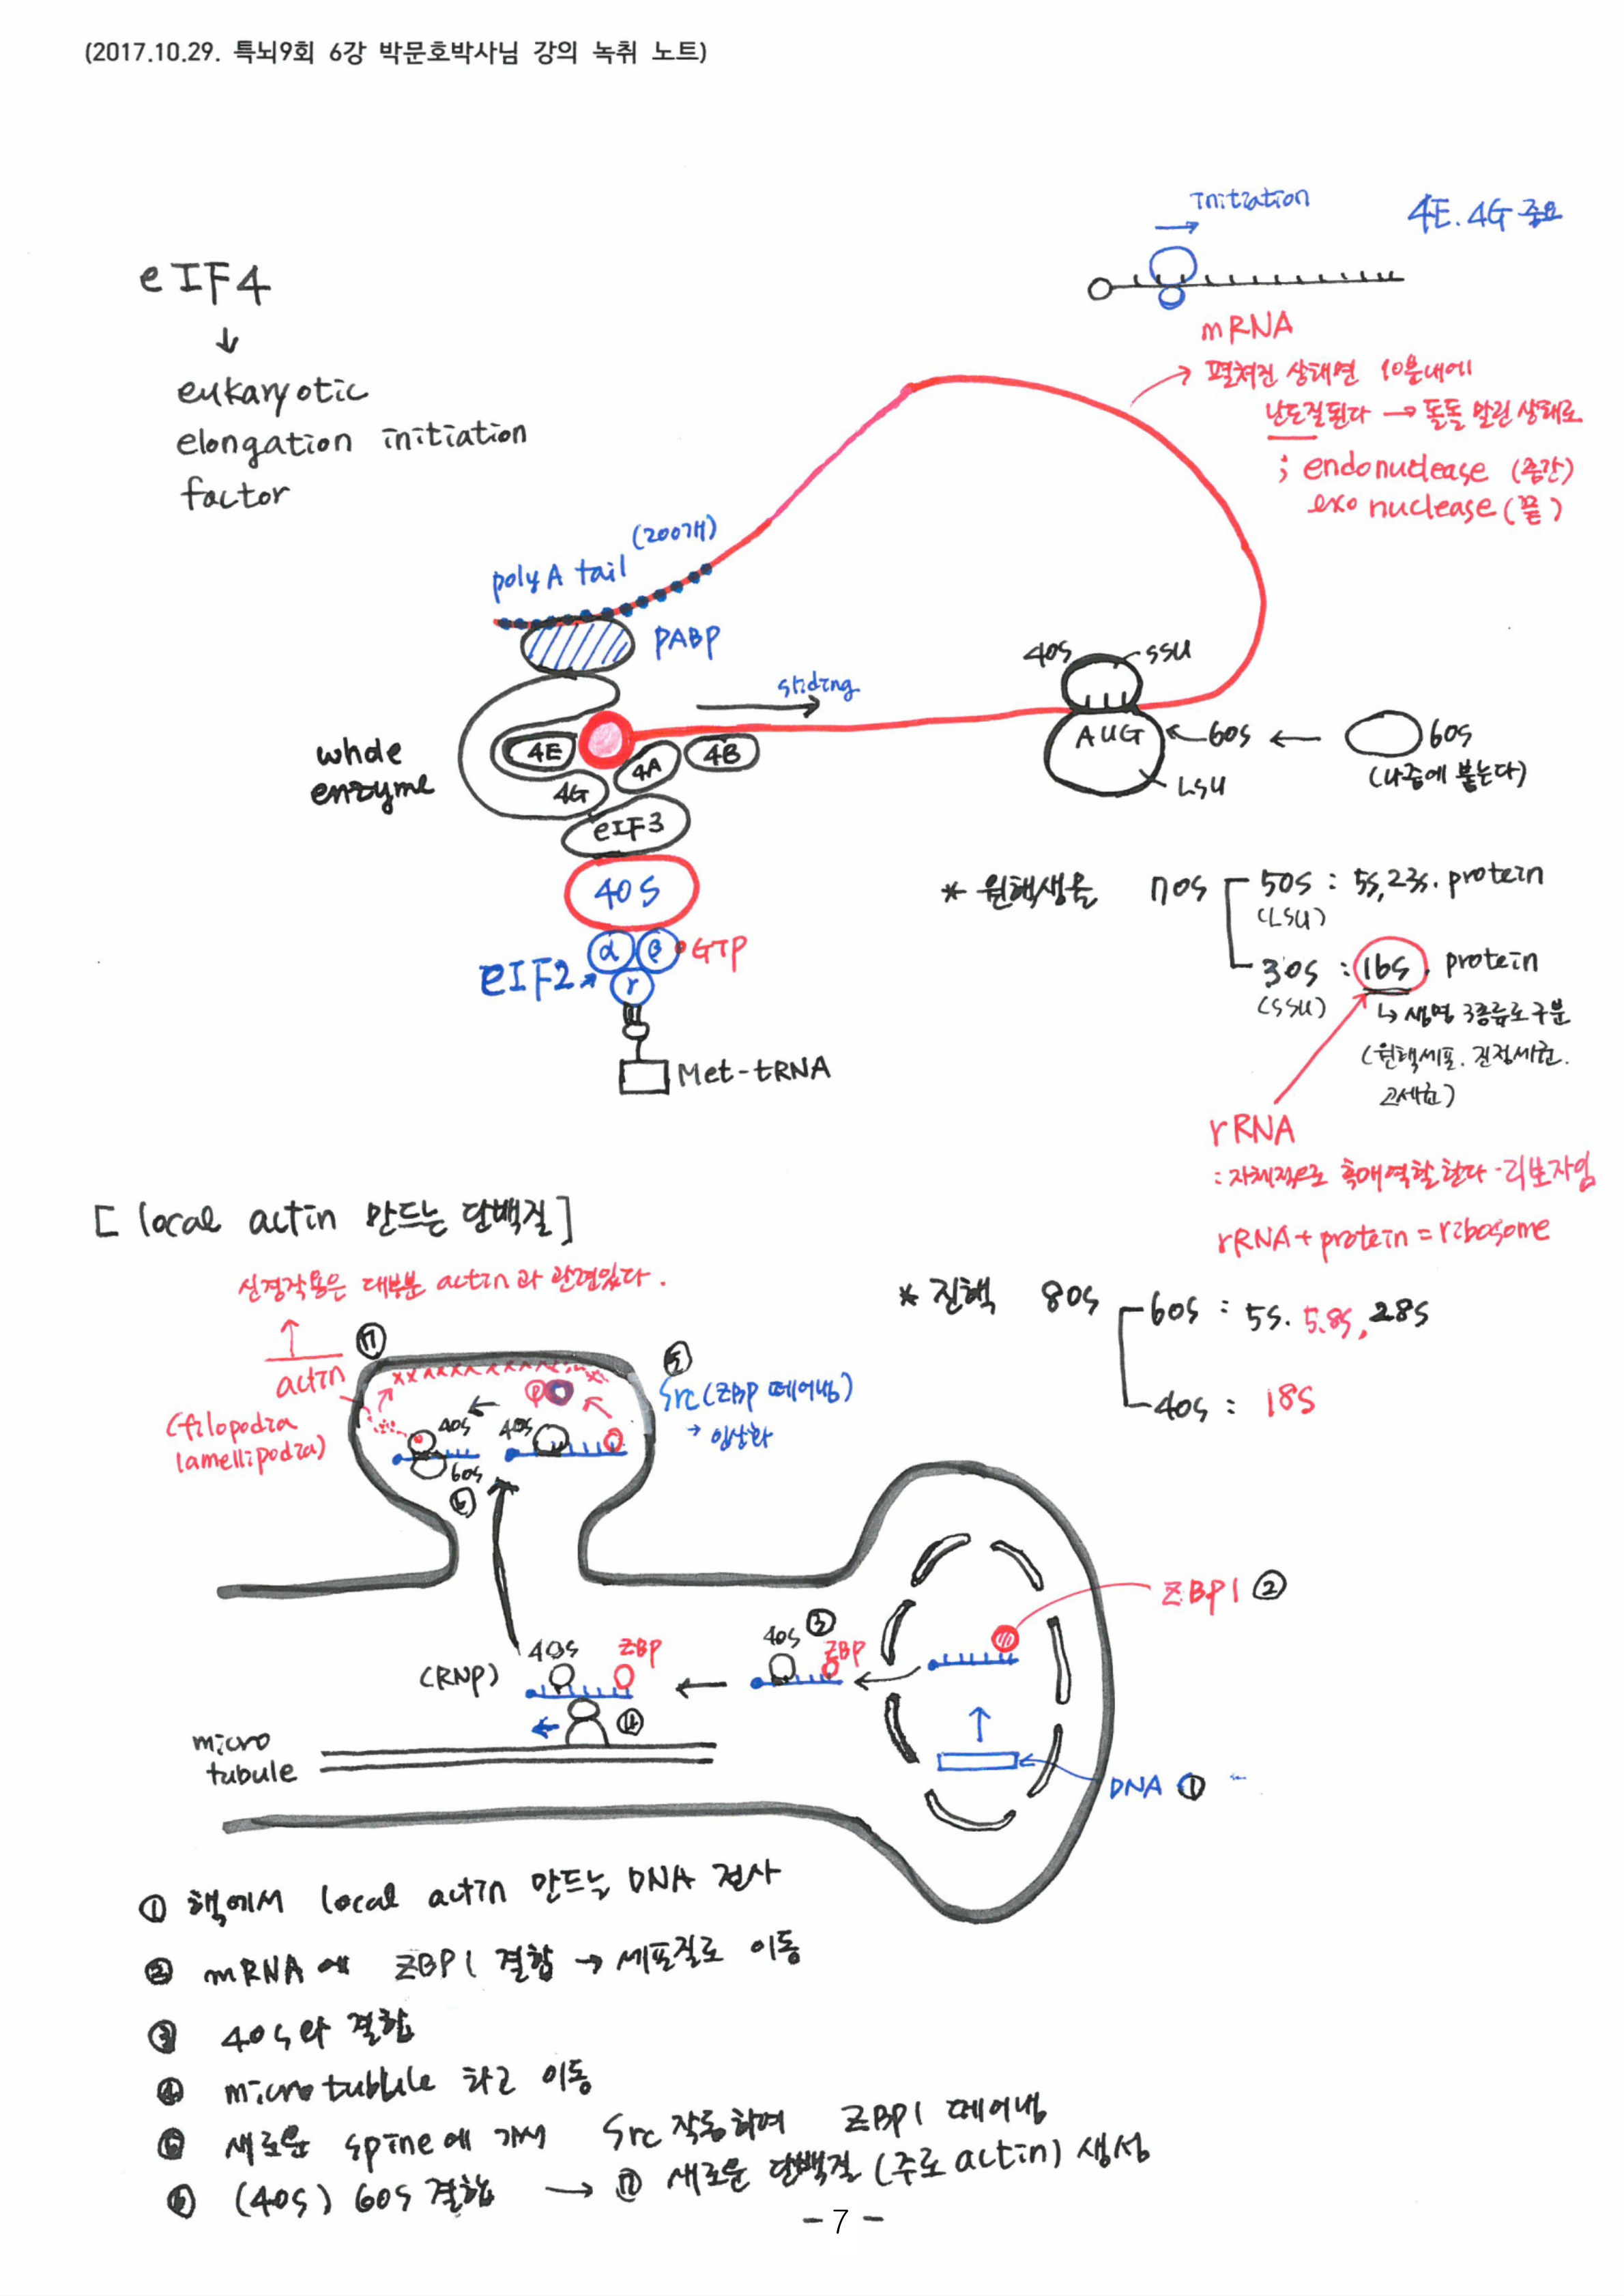 (2017.10.29. 특뇌9회 6강 박문호박사님 강의 녹취 노트)
Initiation
4E. 4G 중요
eIF4
↓
eukaryotic
elongation initiation
factor
mRNA
→ 펼쳐진 상태면 10분내에
난도질된다 → 돌돌 말린 상태로
; endonuclease (중간)
exo nuclease (끝)
poly A tail (200개)
PABP
sliding
whole
enzyme
4E
4A
4B
4G
eIF3
40S
α β GTP
eIF2 → r
Met-tRNA
40S SSU
AUG ← 60S ← 60S
LSU
(나중에 붙는다)
* 원핵생물 70S
50S : 5S, 23S. protein
(LSU)
30S : 16S. protein
(SSU)
↳ 생명 3종류로 구분
(원핵세포. 진정세균.
고세균)
rRNA
: 자체적으로 촉매역할한다 - 리보자임
rRNA + protein = ribosome
* 진핵 80S
60S : 5S. 5.8S, 28S
40S : 18S
[ local actin 만드는 단백질 ]
신경작용은 대부분 actin과 관련있다.
↑
actin
(filopodia
lamellipodia)
⑦
⑤
Src (ZBP 떼어냄)
→ 인산화
P
40S
40S
60S
⑥
ZBP1 ②
40S ③
ZBP
40S
ZBP
(RNP)
④
micro
tubule
DNA ①
① 핵에서 local actin 만드는 DNA 전사
② mRNA에 ZBP1 결합 → 세포질로 이동
③ 40S와 결합
④ microtubule 타고 이동
⑤ 새로운 spine에 가서 Src 작동하여 ZBP1 떼어냄
⑥ (40S) 60S 결합 → ⑦ 새로운 단백질 (주로 actin) 생성
- 7 -